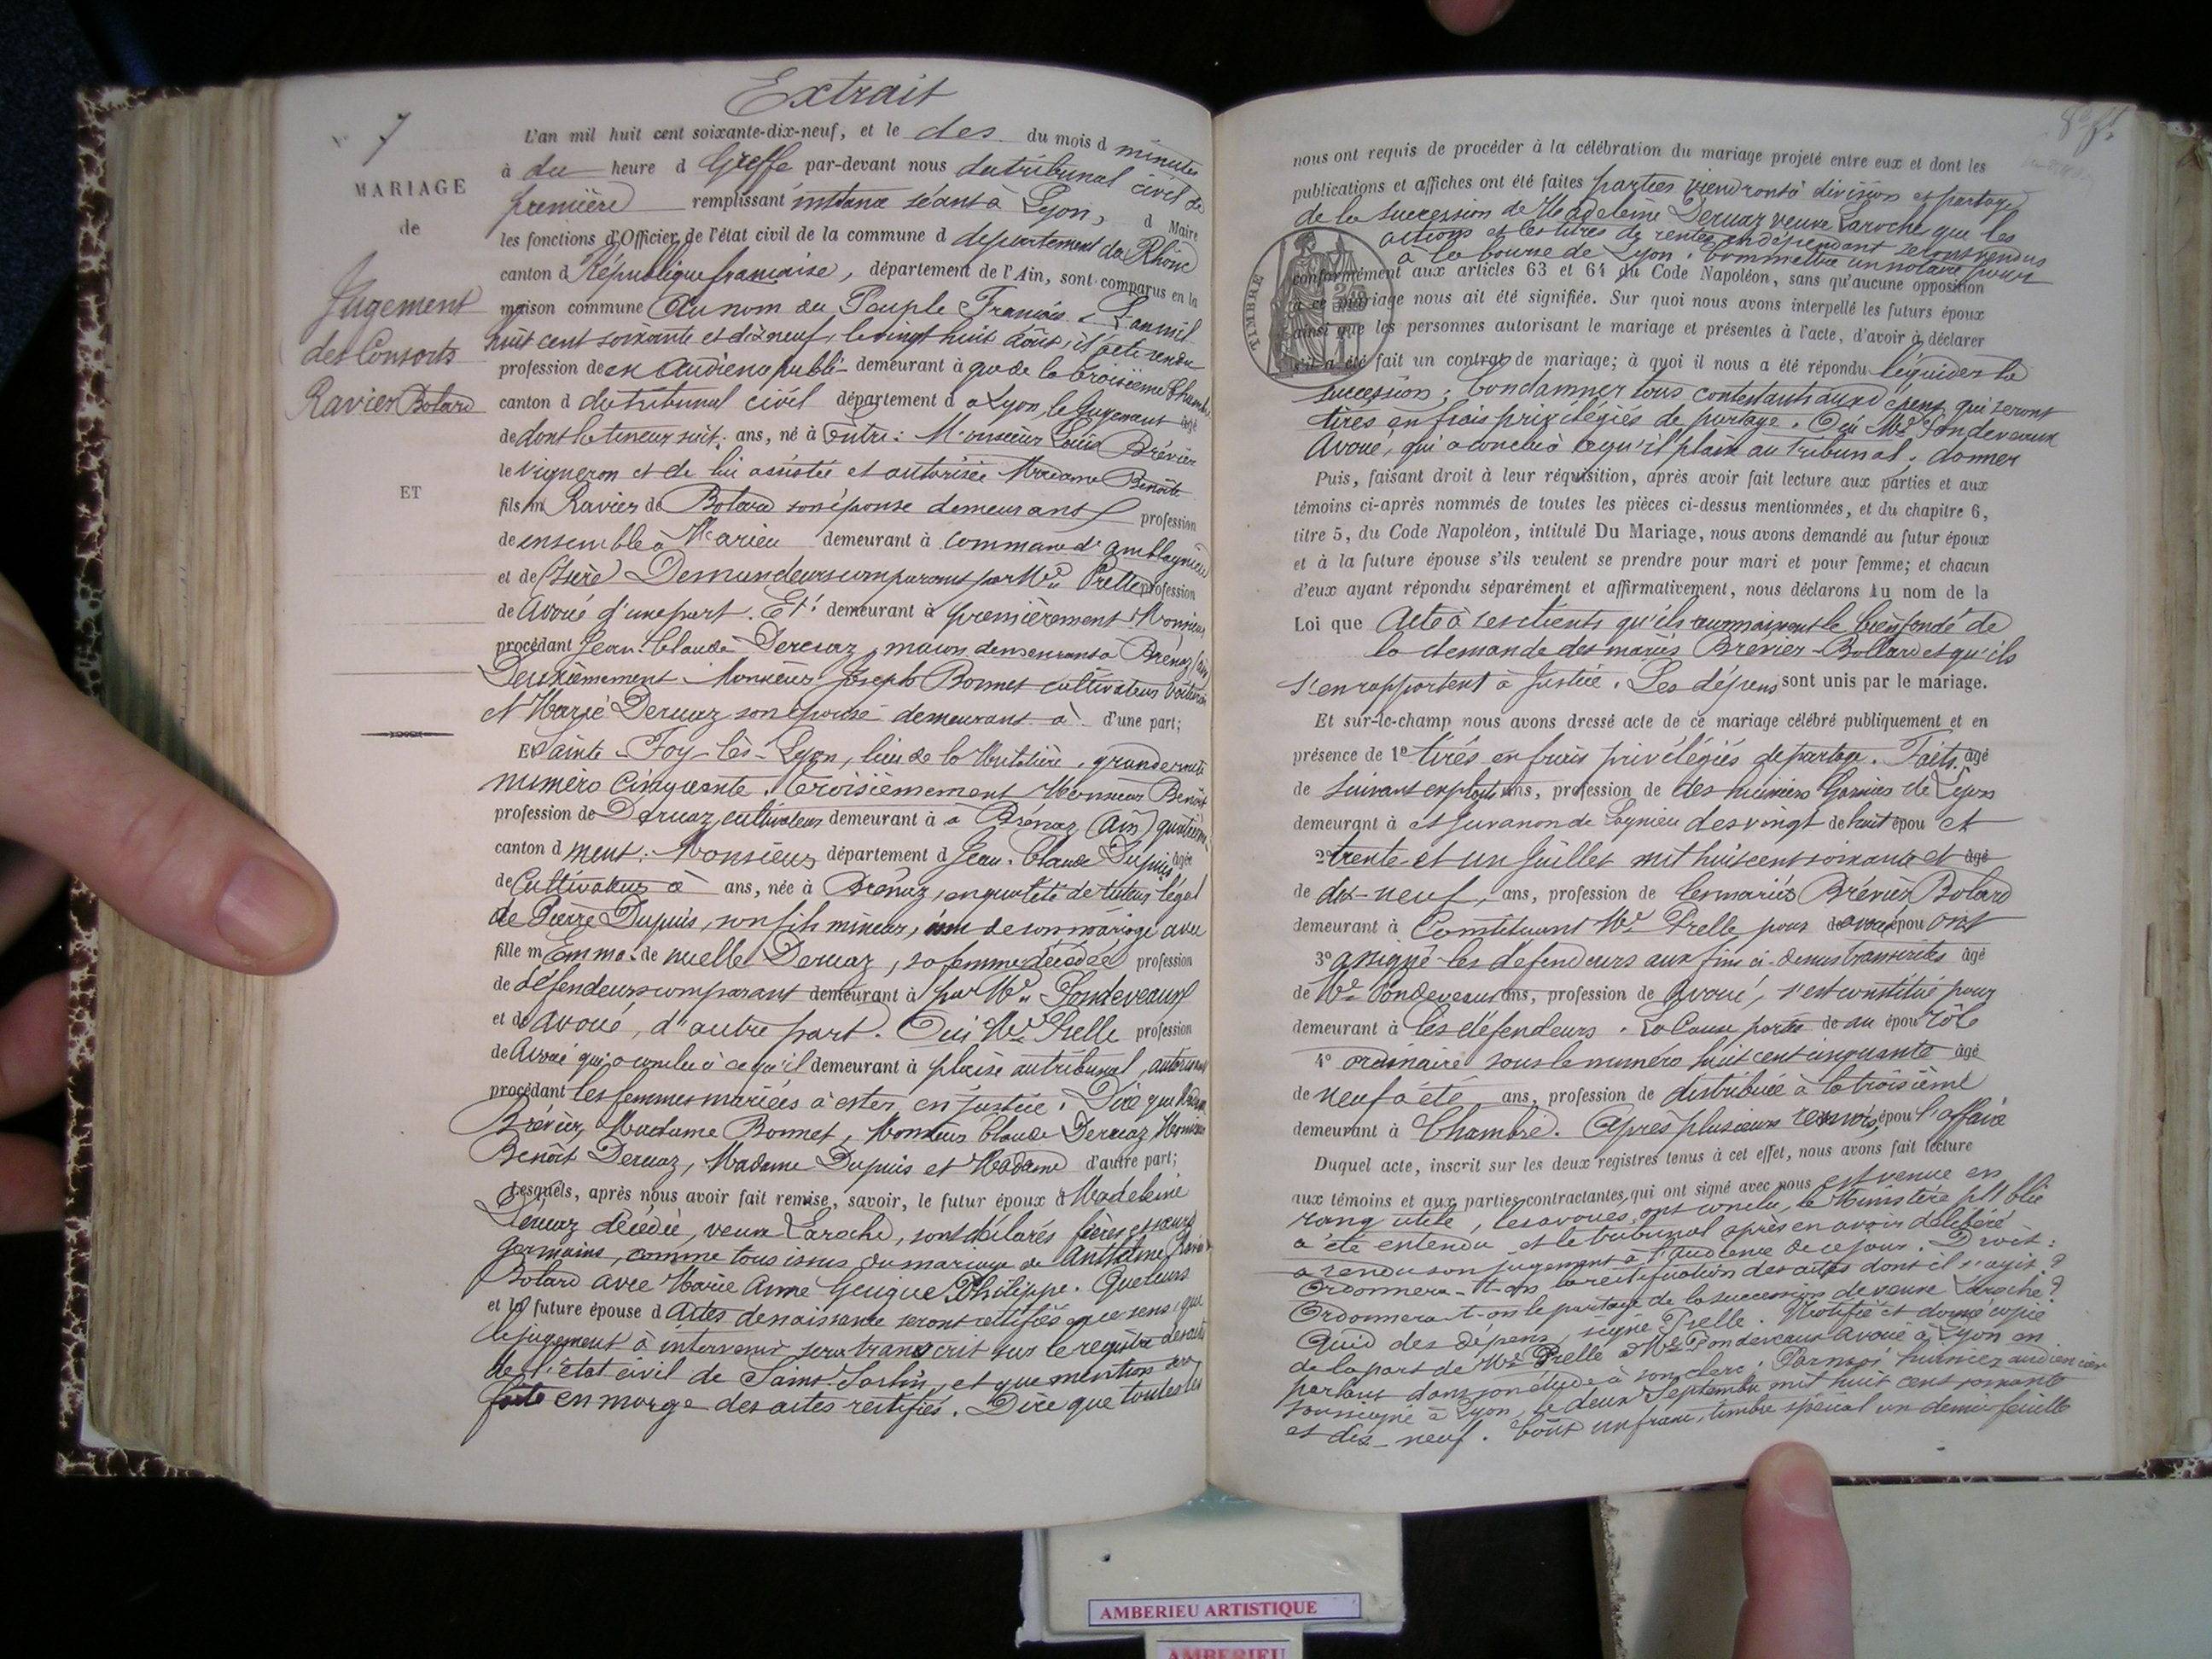 Extrait
N° 7
L'an mil huit cent soixante-dix-neuf, et le des du mois d minutes
à du heure d Greffe par-devant nous du tribunal civil de
première remplissant instance séant à Lyon, d Maire
les fonctions d'Officier de l'état civil de la commune d département du Rhône
canton d République française, département de l'Ain, sont comparus en la
maison commune Au nom du Peuple Français. L'an mil
huit cent soixante et dix neuf, le vingt huit Août, il a été rendu
profession de en Audience publi- demeurant à que de la troisième Chambre
canton d du tribunal civil département d à Lyon le Jugement âgé
de dont la teneur suit: ans, né à Entre: Monsieur Louis Brévier
le vigneron et de lui assistée et autorisée Madame Benoîte
fils m Ravier de Bolard son épouse demeurant profession
de ensemble à Marieu demeurant à commune d'Amblagnieu
et de (Isère) Demandeurs comparant par Me Prelle profession
de Avoué d'une part. Et: demeurant à premièrement Monsieur
procédant Jean-Claude Deruaz, maçon demeurant à Brénaz (Ain)
Deuxièmement Monsieur Joseph Bonnet cultivateur voiturier
et Marie Deruaz son épouse demeurant à d'une part;
Et Sainte-Foy-lès-Lyon, lieu de la Mulatière, grande route
numéro Cinquante. Troisièmement Monsieur Benoît
profession de Deruaz, cultivateur demeurant à à Brénaz (Ain) quatrième-
canton d ment: Monsieur département d Jean-Claude Dupuis âgée
de Cultivateur à ans, née à Brénaz, en qualité de tuteur légal
de Pierre Dupuis, son fils mineur, issu de son mariage avec
fille m Emma- de nuelle Deruaz, sa femme décédée profession
de défendeurs comparant demeurant à par Me Fondeveaux
et de avoué, d'autre part. Ouï Me Prelle profession
de Avoué qui a conclu à ce qu'il demeurant à plaise au tribunal, autoriser
procédant les femmes mariées à ester en justice; Dire que Madame
Brévier, Madame Bonnet, Monsieur Claude Deruaz Monsieur
Benoît Deruaz, Madame Dupuis et Madame d'autre part;
Lesquels, après nous avoir fait remise, savoir, le futur époux d Madeleine
Deruaz décédée, veuve Laroche, sont déclarés frères et sœurs
germains, comme tous issus du mariage de Anthelme Ravier
Bolard avec Marie Anne Guigue Philippe. Que leurs
et la future épouse d Actes de naissance seront rectifiés en ce sens; que
le jugement à intervenir sera transcrit sur le registre des actes
de l'état civil de Saint-Sorlin, et que mention sera
faite en marge des actes rectifiés. Dire que toutes les
MARIAGE
de
Jugement
des Consorts
Ravier Bolard
ET
nous ont requis de procéder à la célébration du mariage projeté entre eux et dont les
publications et affiches ont été faites parties viendront à division et partage
de la succession de Madeleine Deruaz veuve Laroche que les
actions et les titres de rentes en dépendant seront vendus
à la bourse de Lyon; Commettre un notaire pour
TIMBRE
conformément aux articles 63 et 64 du Code Napoléon, sans qu'aucune opposition
à ce mariage nous ait été signifiée. Sur quoi nous avons interpellé les futurs époux
ainsi que les personnes autorisant le mariage et présentes à l'acte, d'avoir à déclarer
s'il a été fait un contrat de mariage; à quoi il nous a été répondu liquider la
succession; Condamner tous contestants aux dépens qui seront
tirés en frais privilégiés de partage. Ouï Me Fondeveaux
Avoué, qui a conclu à ce qu'il plaise au tribunal; donner
Puis, faisant droit à leur réquisition, après avoir fait lecture aux parties et aux
témoins ci-après nommés de toutes les pièces ci-dessus mentionnées, et du chapitre 6,
titre 5, du Code Napoléon, intitulé Du Mariage, nous avons demandé au futur époux
et à la future épouse s'ils veulent se prendre pour mari et pour femme; et chacun
d'eux ayant répondu séparément et affirmativement, nous déclarons Au nom de la
Loi que Acte à ses clients qu'ils reconnaissent le bien fondé de
la demande des mariés Brévier-Bollard et qu'ils
s'en rapportent à justice. Les dépens sont unis par le mariage.
Et sur-le-champ nous avons dressé acte de ce mariage célébré publiquement et en
présence de 1° tirés en frais privilégiés de partage. Faits. âgé
de Suivant exploits ans, profession de des huissiers Garnier de Lyon
demeurant à et Juvanon de Lagnieu des vingt de huit épou et
2° trente et un Juillet mil huit cent soixante et âgé
de dix-neuf, ans, profession de les mariés Brévier Bolard
demeurant à Constituant Me Prelle pour de avoué épou ont
3° assigné les défendeurs aux fins ci-dessus transcrites âgé
de Me Fondeveaux ans, profession de avoué, s'est constitué pour
demeurant à les défendeurs. La Cause portée de au épou rôle
4° ordinaire sous le numéro huit cent cinquante âgé
de neuf a été ans, profession de distribuée à la troisième
demeurant à Chambre. Après plusieurs renvois, épou l'affaire
Duquel acte, inscrit sur les deux registres tenus à cet effet, nous avons fait lecture
aux témoins et aux parties contractantes, qui ont signé avec nous est venue en
rang utile, les avoués ont conclu, le Ministère public
a été entendu et le tribunal après en avoir délibéré
a rendu son jugement à l'audience de ce jour. Droit:
Ordonnera-t-on la rectification des actes dont il s'agit?
Ordonnera-t-on le partage de la succession de veuve Laroche?
Quid des dépens, signé Prelle. Notifié et donné copie
de la part de Me Prelle à Me Fondeveaux avoué à Lyon en
parlant dans son étude à son clerc. Par moi huissier audiencier
soussigné à Lyon, le deux Septembre mil huit cent soixante
et dix-neuf. Coût un franc, timbre spécial un demi feuille
AMBERIEU ARTISTIQUE
AMBERIEU